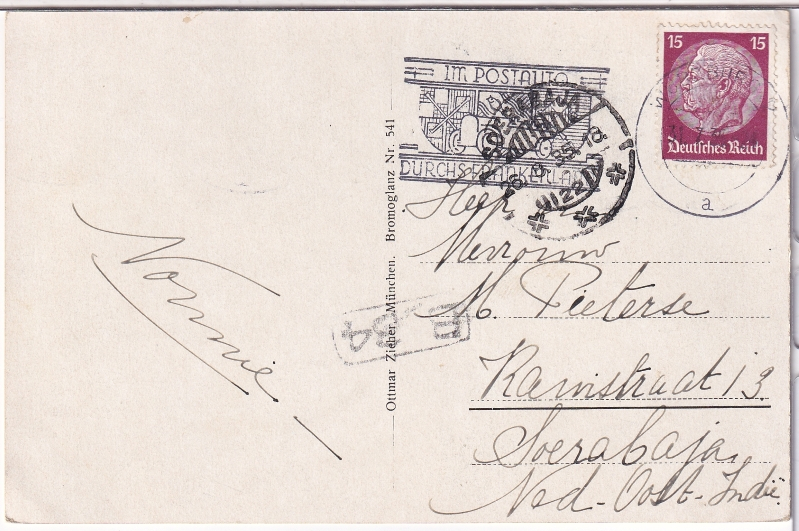 15 15
Deutsches Reich
IM POSTAUTO
DURCHS FRANKENLAND
SOERABAJA
a
Ottmar Zieher, München. Bromoglanz Nr. 541
Nonnie.
Mevrouw
M. Pieterse
Ramstraat 13
Soerabaja
Ned-Oost-Indië.
34